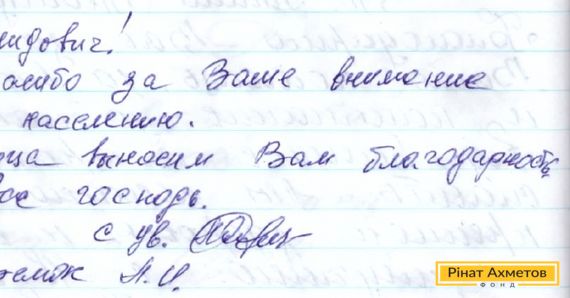 идович!
асибо за Ваше внимание
населению.
ца выносим Вам благодарность,
господь.
с ув.
А.И.
Рінат Ахметов
ФОНД